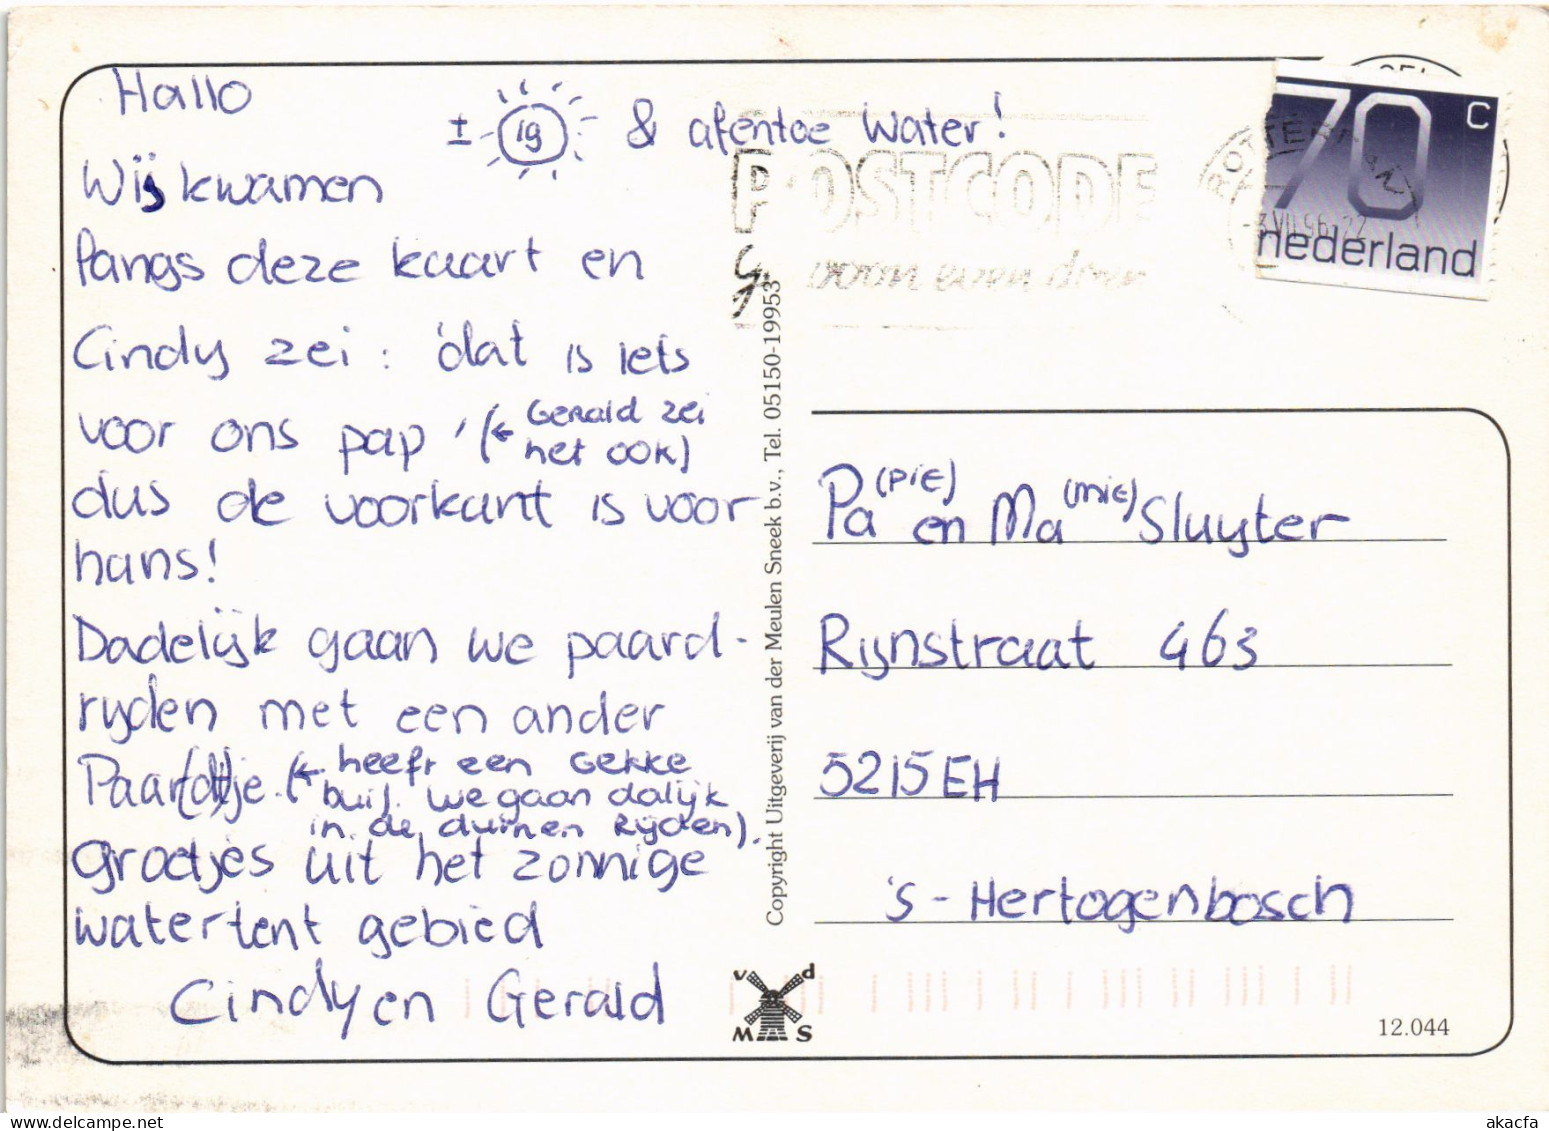 Hallo
± 19 & af en toe Water!
Wijs kwamen
Pangs deze kaart en
Cindy zei : 'dat is iets
voor ons pap' (← Gerald zei
het ook)
dus de voorkant is voor
hans!
Dadelijk gaan we paard-
ryden met een ander
Paard(d)tje. (← heeft een Gekke
buij. we gaan dalijk
in de duinen Rijden).
Groetjes uit het zonnige
watertent gebied
Cindy en Gerald
POSTCODE
70 c
nederland
ROTTERDAM
Copyright Uitgeverij van der Meulen Sneek b.v., Tel. 05150-19953
Pa(pie) en Ma(mie) Sluyter
Rijnstraat 463
5215 EH
's-Hertogenbosch
v d
M S
12.044
www.delcampe.net
akacfa